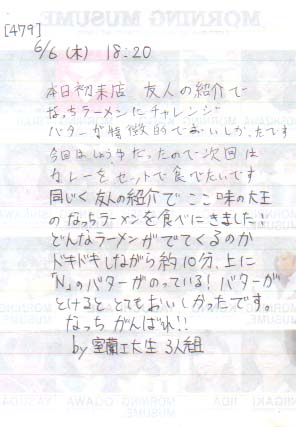 MORNING MUSUME
[479]
6/6 (木) 18:20
本日初来店 友人の紹介で
なっちラーメンにチャレンジ
バターが特徴的でおいしかったです
今回はしょうゆだったので次回は
カレーをセットで食べたいです
同じく友人の紹介でここ味の大王
のなっちラーメンを食べにきました!
どんなラーメンがでてくるのか
ドキドキしながら約10分、上に
「N」のバターがのっている!バターが
とけると とてもおいしかったです。
なっち がんばれ!!
by 室蘭工大生 3人組
NIIGAKI IIDA YASUDA
MORNING MUSUME